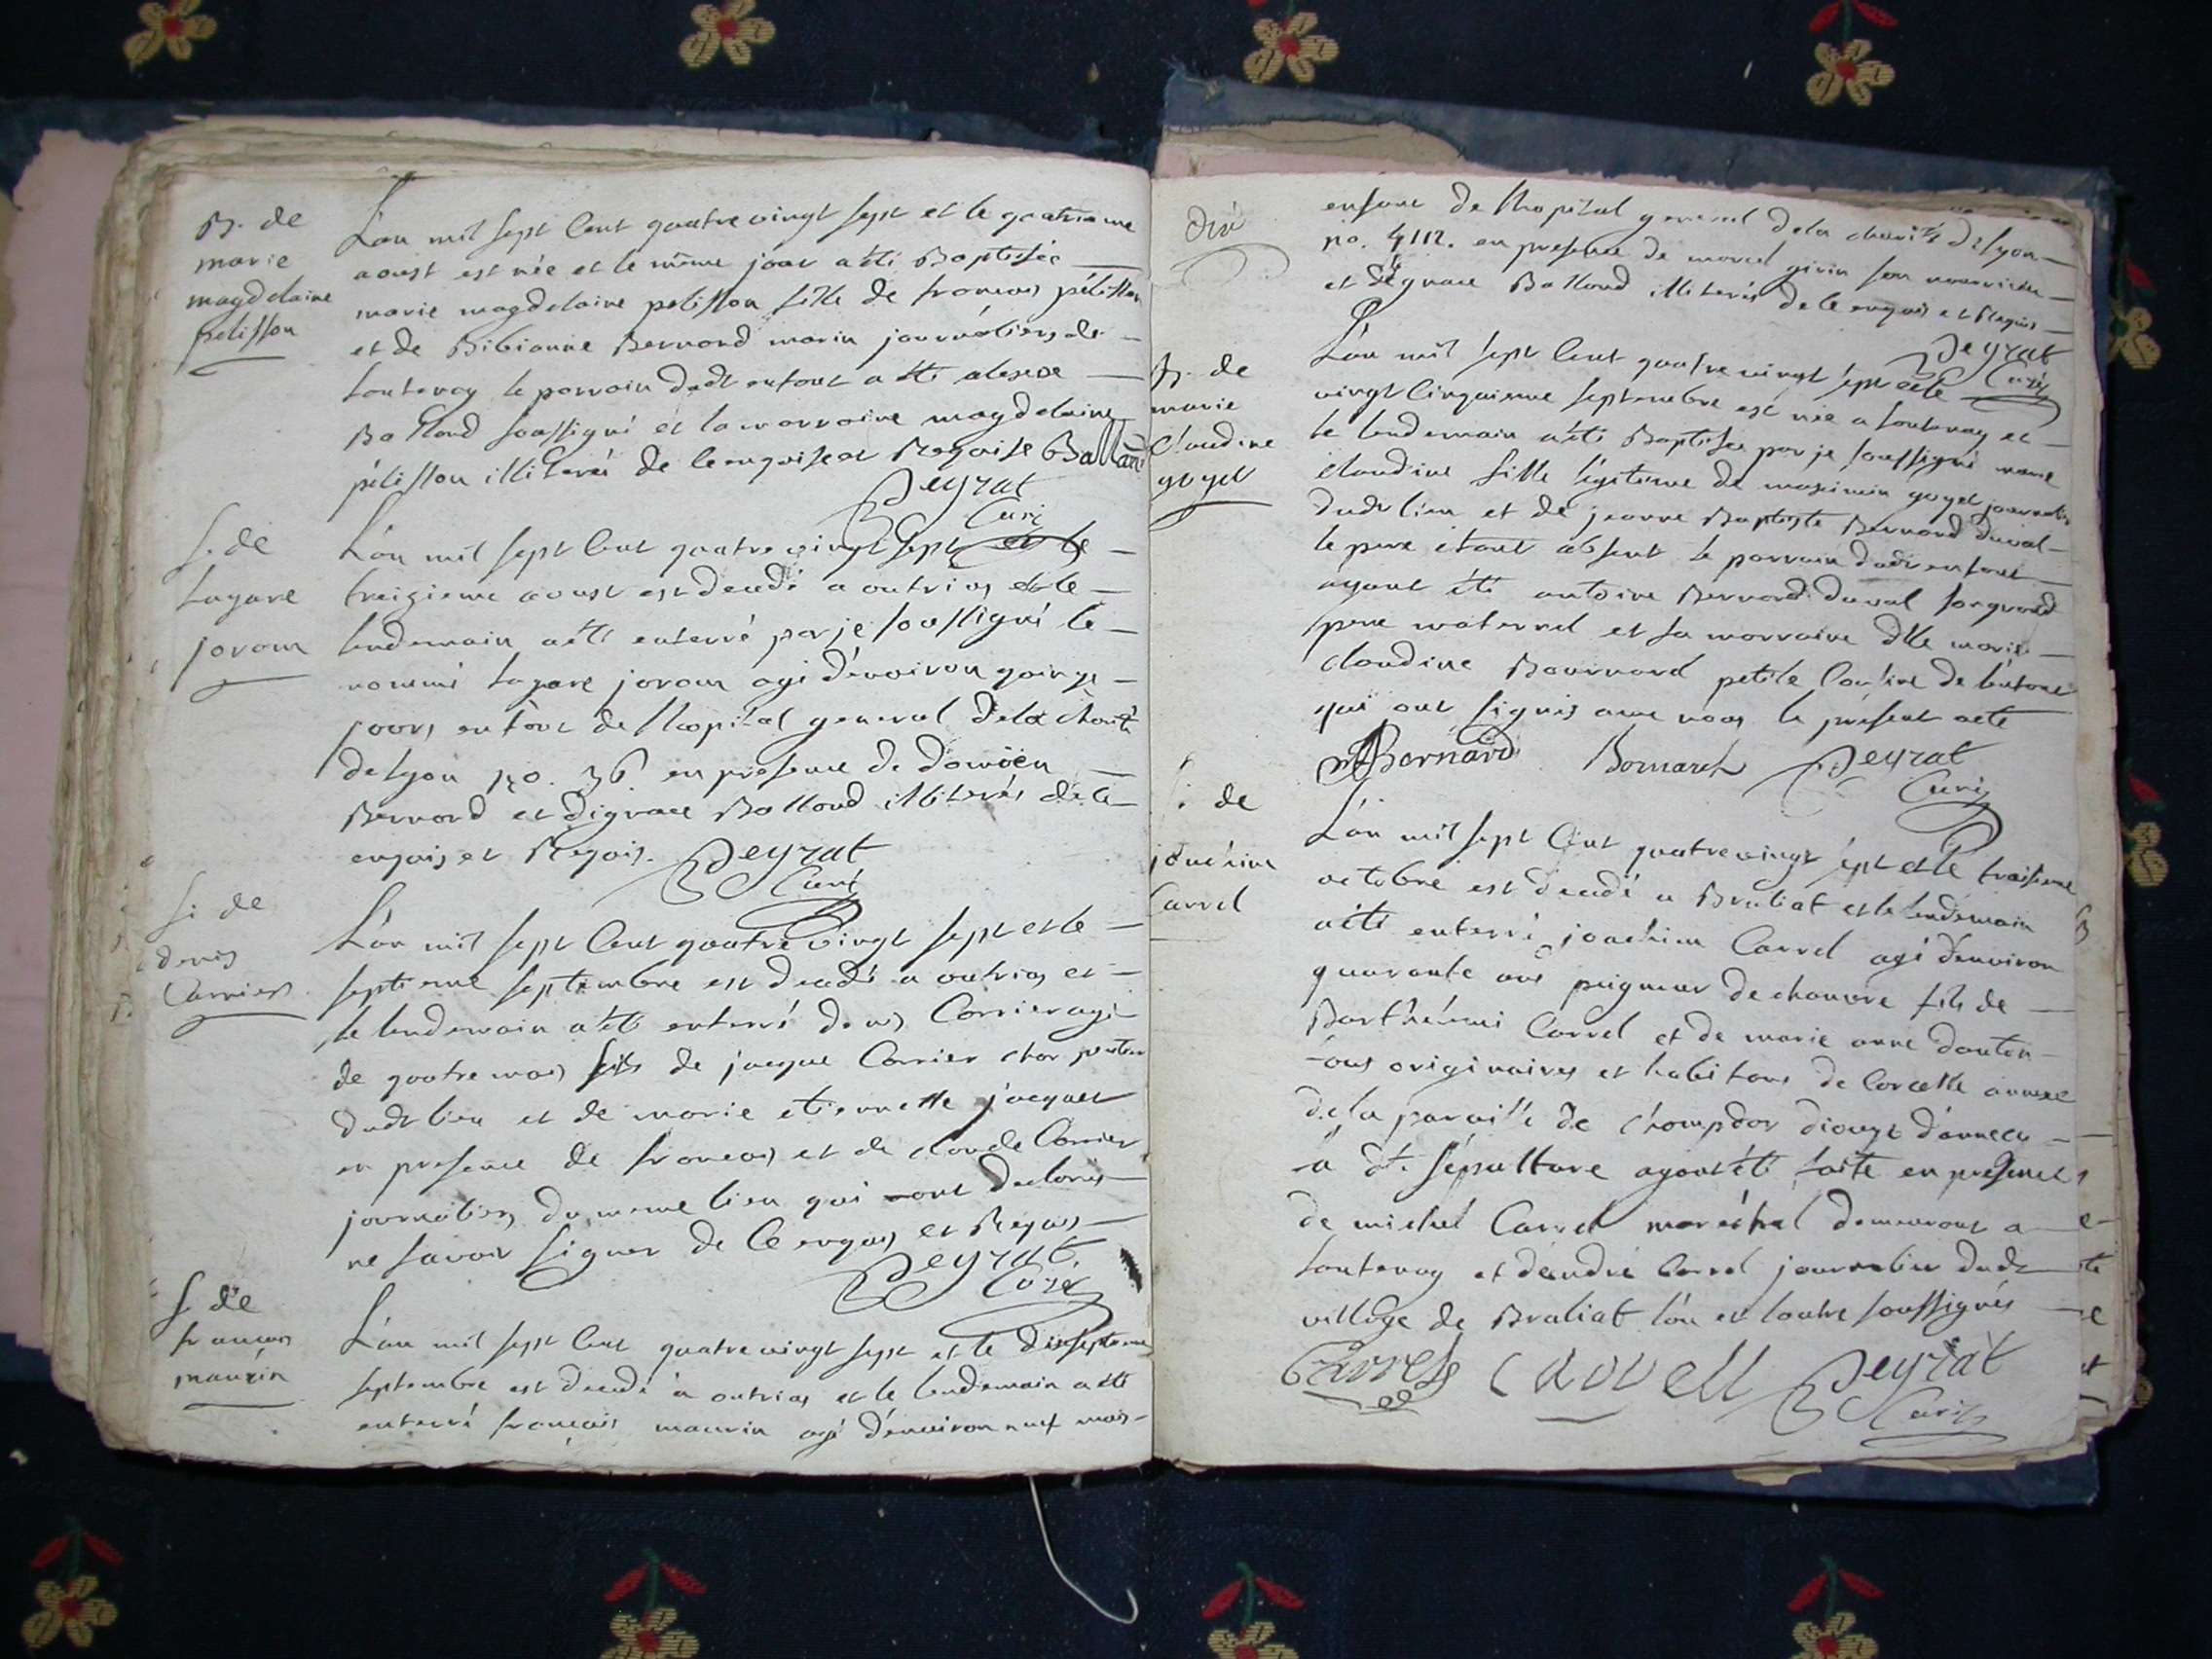 B. de
marie
magdelaine
pelisson
L'an mil sept Cent quatre vingt sept et le quatrieme
aoust est née et le même jour a été Baptisée
marie magdelaine pelisson fille de francois pélisson
et de Bibianne Bernard marin journaliers de
fontenay le parrain dudt enfant a été
Balland soussigné et la marraine magdelaine
pélisson illiterée de ce enquise et Requise Balland
Peyrat
Curé
S. de
lazare
joram
L'an mil sept Cent quatre vingt sept et le
treizieme aoust est decedé a outrias et le
lendemain a été enterré par je soussigné le
nommé lazare joram agé d'environ quinze
jours enfant de l'hopital general de la charité
de Lyon no. 36 en presence de
Bernard et d'ignace Balland illiterés de ce
enquis et Requis. Peyrat
Curé
S. de
denis
Carrier
L'an mil sept Cent quatre vingt sept et le
septieme septembre est decedé a outrias et
le lendemain a été enterré denis Carrier agé
de quatre mois fils de jacque Carrier charpentier
dudt lieu et de marie etiennette jacquet
en presence de francois et de claude Carrier
journaliers du meme lieu qui ont declarés
ne savoir signer de Ce enquis et Requis
Peyrat
Curé
S. de
francois
maurin
L'an mil sept Cent quatre vingt sept et le dixseptieme
septembre est decedé a outrias et le lendemain a été
enterré francois maurin agé d'environ neuf mois
enfant de l'hopital general de la charité de Lyon
no. 4112. en presence de marcel girin son nourricier
et d'ignace Balland illiterés de ce enquis et Requis
Peyrat
Curé
B. de
marie
Claudine
goyet
L'an mil sept Cent quatre vingt sept et le
vingt Cinquieme septembre est née a fontenay et
le lendemain a été Baptisée par je soussigné marie
claudine fille légitime de maximin goyet journalier
dudt lieu et de jeanne Baptiste Bernard duval
le pere étant absent le parrain dudt enfant
ayant été antoine Bernard duval son grand
pere maternel et sa marraine dlle marie
claudine Bournard petite Cousine de l'enfant
qui ont signés avec nous le présent acte
Bernard Peyrat
Curé
S. de
joachim
Carrel
L'an mil sept Cent quatre vingt sept et le traisieme
octobre est decedé a Braliat et le lendemain
a été enterré joachim Carrel agé d'environ
quarante ans peigneur de chanvre fils de
Barthélemi Carrel et de marie anne
tous originaires et habitans de Corcelle annexe
de la paroisse de Champdor
la dte. sépulture ayant été faite en presence
de michel Carrel maréchal demeurant a
fontenay et d'andré Carrel journalier dudt
village de Braliat l'un et l'autre soussignés
Carrel Peyrat
Curé